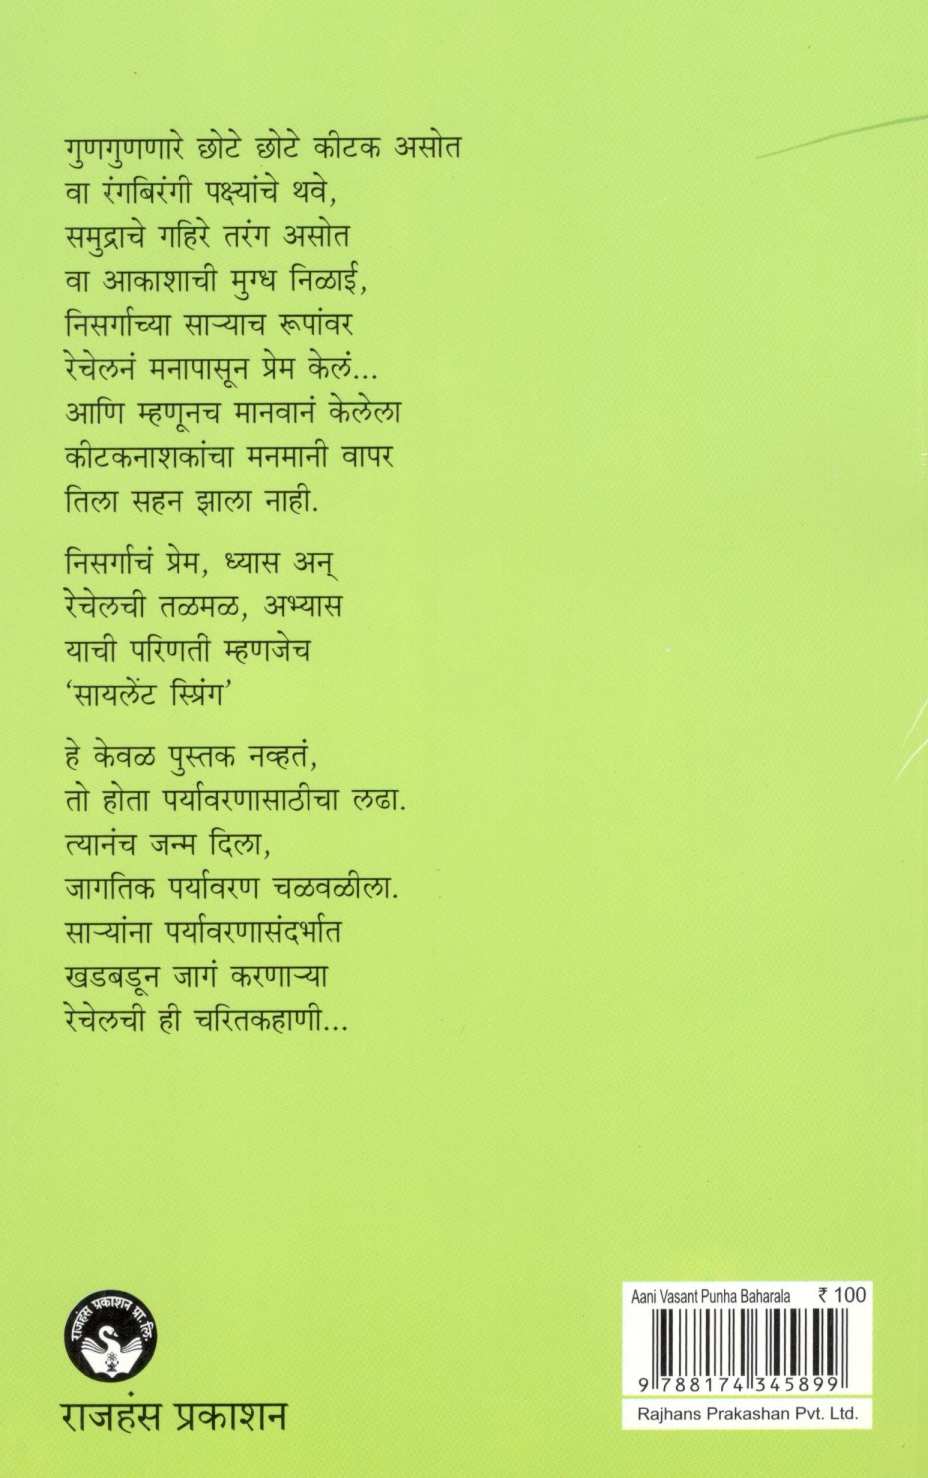 गुणगुणणारे छोटे छोटे कीटक असोत
वा रंगबिरंगी पक्ष्यांचे थवे,
समुद्राचे गहिरे तरंग असोत
वा आकाशाची मुग्ध निळाई,
निसर्गाच्या साऱ्याच रूपांवर
रेचेलनं मनापासून प्रेम केलं...
आणि म्हणूनच मानवानं केलेला
कीटकनाशकांचा मनमानी वापर
तिला सहन झाला नाही.
निसर्गाचं प्रेम, ध्यास अन्
रेचेलची तळमळ, अभ्यास
याची परिणती म्हणजेच
‘सायलेंट स्प्रिंग’
हे केवळ पुस्तक नव्हतं,
तो होता पर्यावरणासाठीचा लढा.
त्यानंच जन्म दिला,
जागतिक पर्यावरण चळवळीला.
साऱ्यांना पर्यावरणासंदर्भात
खडबडून जागं करणाऱ्या
रेचेलची ही चरितकहाणी...
राजहंस प्रकाशन प्रा.लि.
राजहंस प्रकाशन
Aani Vasant Punha Baharala ₹ 100
9 788174 345899
Rajhans Prakashan Pvt. Ltd.